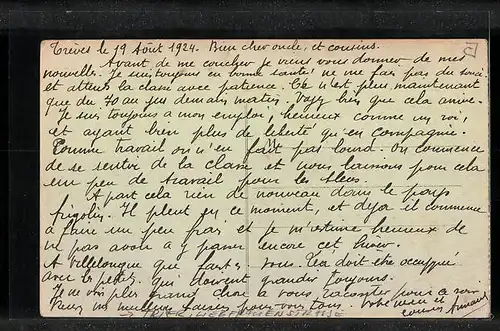 Trèves le 19 Août 1924. Bien cher oncle, et cousins.
Avant de me coucher je viens vous donner de mes
nouvelles. Je suis toujours en bonne santé ne me fais pas du souci
et attens la classe avec patience. Ce n'est plus maintenant
que du 70 au jus demain matin. Voyez bien que cela arrive.
Je suis toujours a mon emploi, heureux comme un roi,
et ayant bien plus de liberté qu'en Compagnie.
Comme travail on n'en fait pas lourd. On commence
de se sentir de la classe et nous laissons pour cela
un peu de travail pour les bleus.
A part cela rien de nouveau dans le pays
frigolin. Il pleut en ce moment, et déja il commence
a faire un peu frais et je m'estime heureux de
ne pas avoir a y passer encore cet hiver.
A Villelongue que faites vous. Léa doit être occupée
avec les petits qui doivent grandir toujours.
Je ne vois plus grand chose a vous raconter pour ce soir.
Recevez mes meilleurs baisers pour vous tous. Votre neveu et
cousin Armand